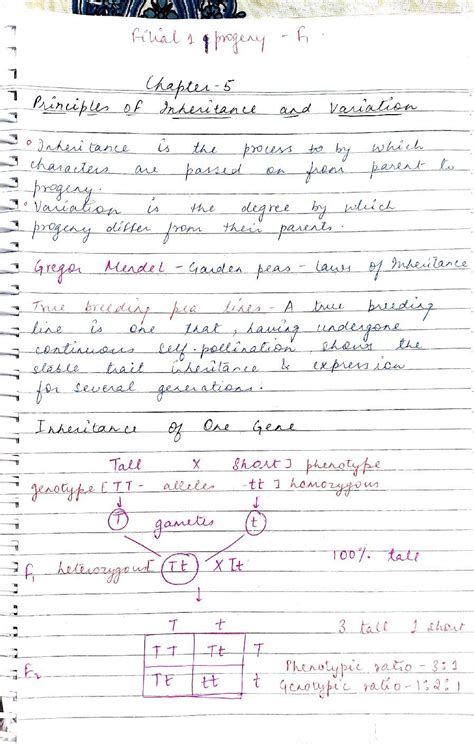 Filial 1 progeny - F1.
Chapter-5
Principles of Inheritance and Variation
Inheritance is the process by which
characters are passed on from parent to
progeny.
Variation is the degree by which
progeny differ from their parents.
Gregor Mendel - Garden peas - laws of Inheritance
True breeding pea lines - A true breeding
line is one that, having undergone
continuous self-pollination shows the
stable trait inheritance & expression
for several generations.
Inheritance of One Gene
Tall X Short] phenotype
genotype [TT - alleles tt] homozygous
↓ ↓
T gametes t
F1 heterozygous Tt X Tt 100% tall
↓
T t 3 tall 1 short
TT Tt T
F2 Phenotypic ratio - 3:1
Tt tt t Genotypic ratio - 1:2:1